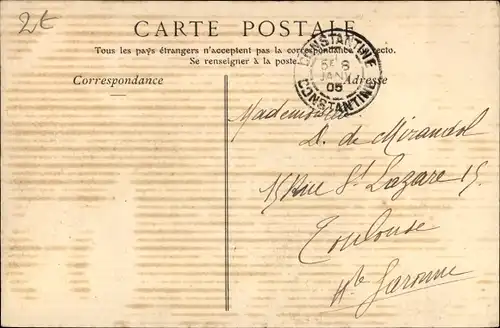 2€
CARTE POSTALE
Tous les pays étrangers n'acceptent pas la correspondance au recto.
Se renseigner à la poste.
CONSTANTINE
5E 8
JANV
05
CONSTANTINE
Correspondance
Adresse
Mademoiselle
D. de Mirandol
15 Rue St Lazare 15
Toulouse
Hte Garonne